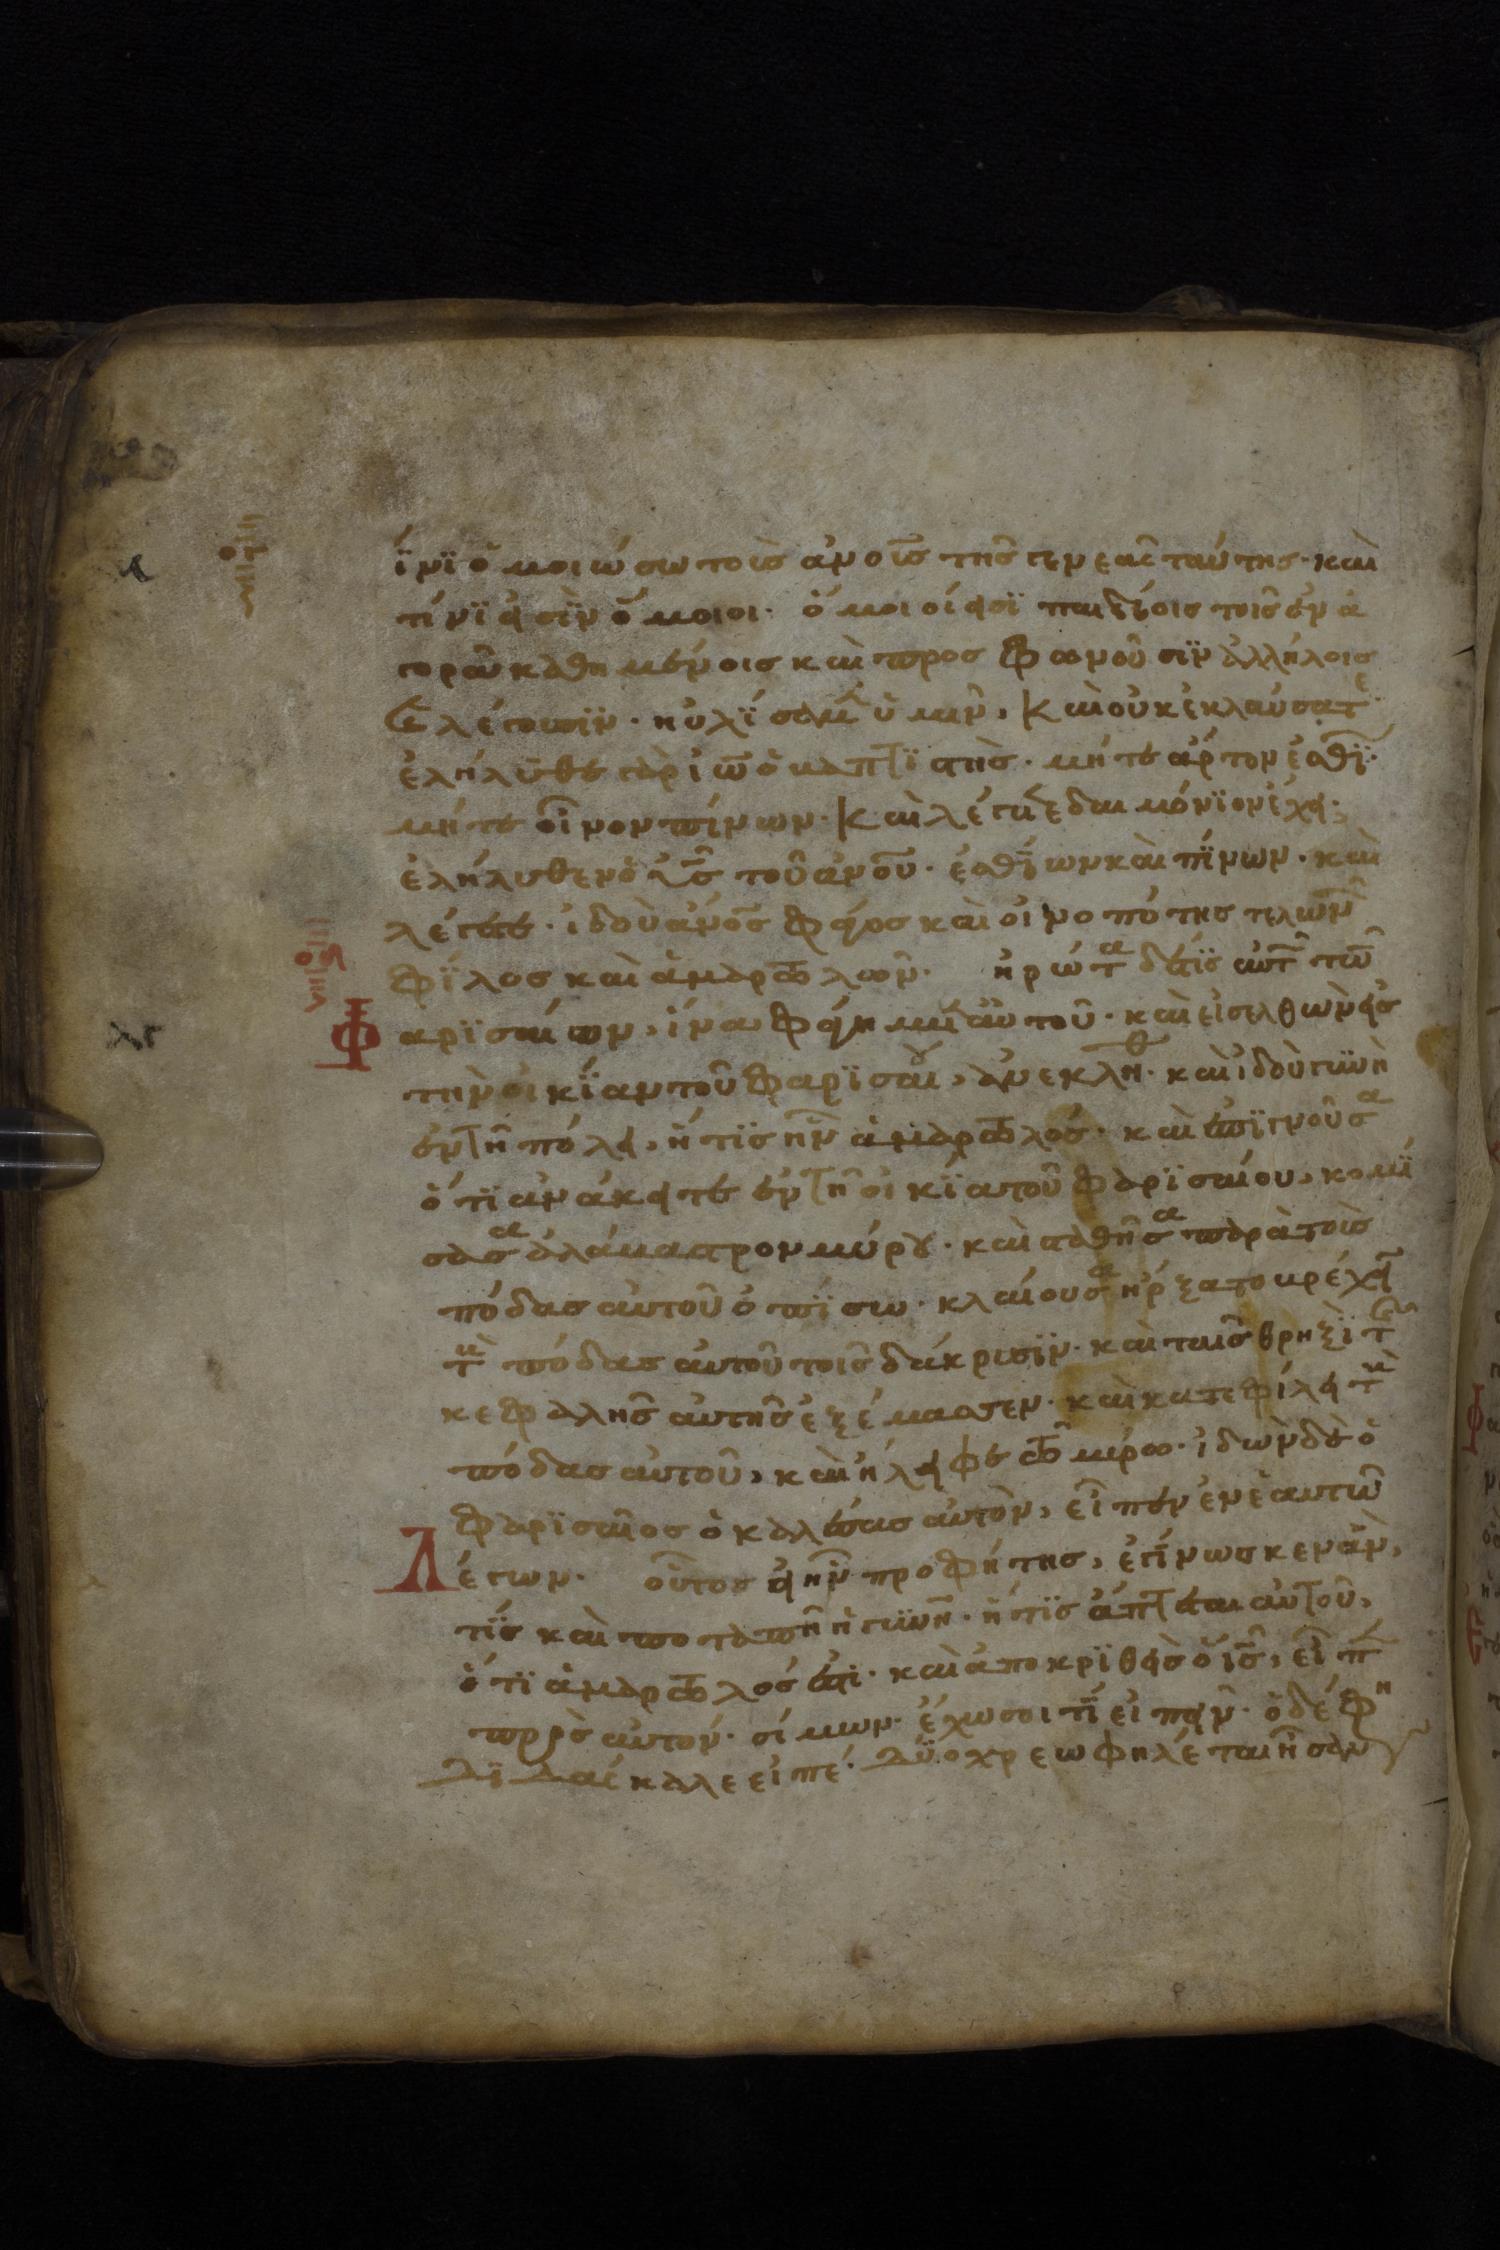 ΐνϊ ὁμοιώσω τοὺς ἀν̅ο̅υ̅ς τῆς γενεᾶς ταύτης· καὶ
τίνϊ εἰσὶν ὅμοιοι· ὅμοιοί εἰσϊ παιδίοις τοῖς ἐν ἀ
γορᾶ καθημένοις καὶ προσφωνοῦσϊν ἀλλήλοις
λέγουσϊν· ηὐλίσαμ ὑμῖν, καὶ οὐκ ἐκλαύσατε
ἐλήλυθε γὰρ ἰω̅ ὁ βαπτϊστὴς· μήτε ἄρτον ἐσθϊ
μήτε οἶνον πίνων· καὶ λέγετε δαιμόνϊον ἔχει·
ἐλήλυθεν ὁ υ̅ς̅ τοῦ ἀν̅ο̅υ̅· ἐσθΐων καὶ πΐνων· καὶ
λέγετε· ἰδοὺ ἄν̅ο̅ς̅ φάγος καὶ οἰνοπότης τελωνῶν
φΐλος καὶ ἁμαρτωλῶν· ἠρώτα δέ τϊς αὐτ τῶν
Φαρϊσαίων, ἵνα φάγη μετ αὐτοῦ· καὶ εἰσελθὼν εἰς
τὴν οἰκΐαν τοῦ φαρϊσαίου, ἀνεκλήθ· καὶ ἰδοὺ γϋνὴ
ἐν τῆ πόλει, ἥτϊς ἦν ἁμαρτωλός· καὶ ἐπϊγνοῦσα
ὅτϊ ἀνάκειται ἐν τῆ οἰκΐα τοῦ φαρϊσαίου, κομϊ
σασα ἀλάβαστρον μύρου· καὶ σταθῆσα παρὰ τοὺς
πόδας αὐτοῦ ὀπΐσω· κλαίουσα ἤρξατο βρέχειν
τ πόδας αὐτοῦ τοῖς δάκρυσϊν· καὶ ταῖς θρηξὶ τῆς
κεφαλῆς αὐτῆς ἐξέμασσεν· καὶ κατεφίλει τ
πόδας αὐτοῦ, καὶ ἤλειφε τῶ μύρω· ἰδὼν δὲ ὁ
φαρϊσαῖος ὁ καλέσας αὐτὸν, εἶπεν ἐν ἑαυτῶ
Λέγων· οὗτος εἰ ἦν προφήτης, ἐγΐνωσκεν ἂν,
τΐς καὶ ποταπὴ ἡ γϋνὴ· ἥτϊς ἅπτεται αὐτοῦ,
ὅτϊ ἁμαρτωλός ἐστι· καὶ ἀποκρϊθεὶς ὁ ι̅ς̅, εἶπ
πρὸς αὐτόν· σίμων· ἔχω σοι τΐ εἰπεῖν· ὁ δέ φη
Δϊδάσκαλε εἰπέ· Δύο χρεωφηλέται ἦσαν